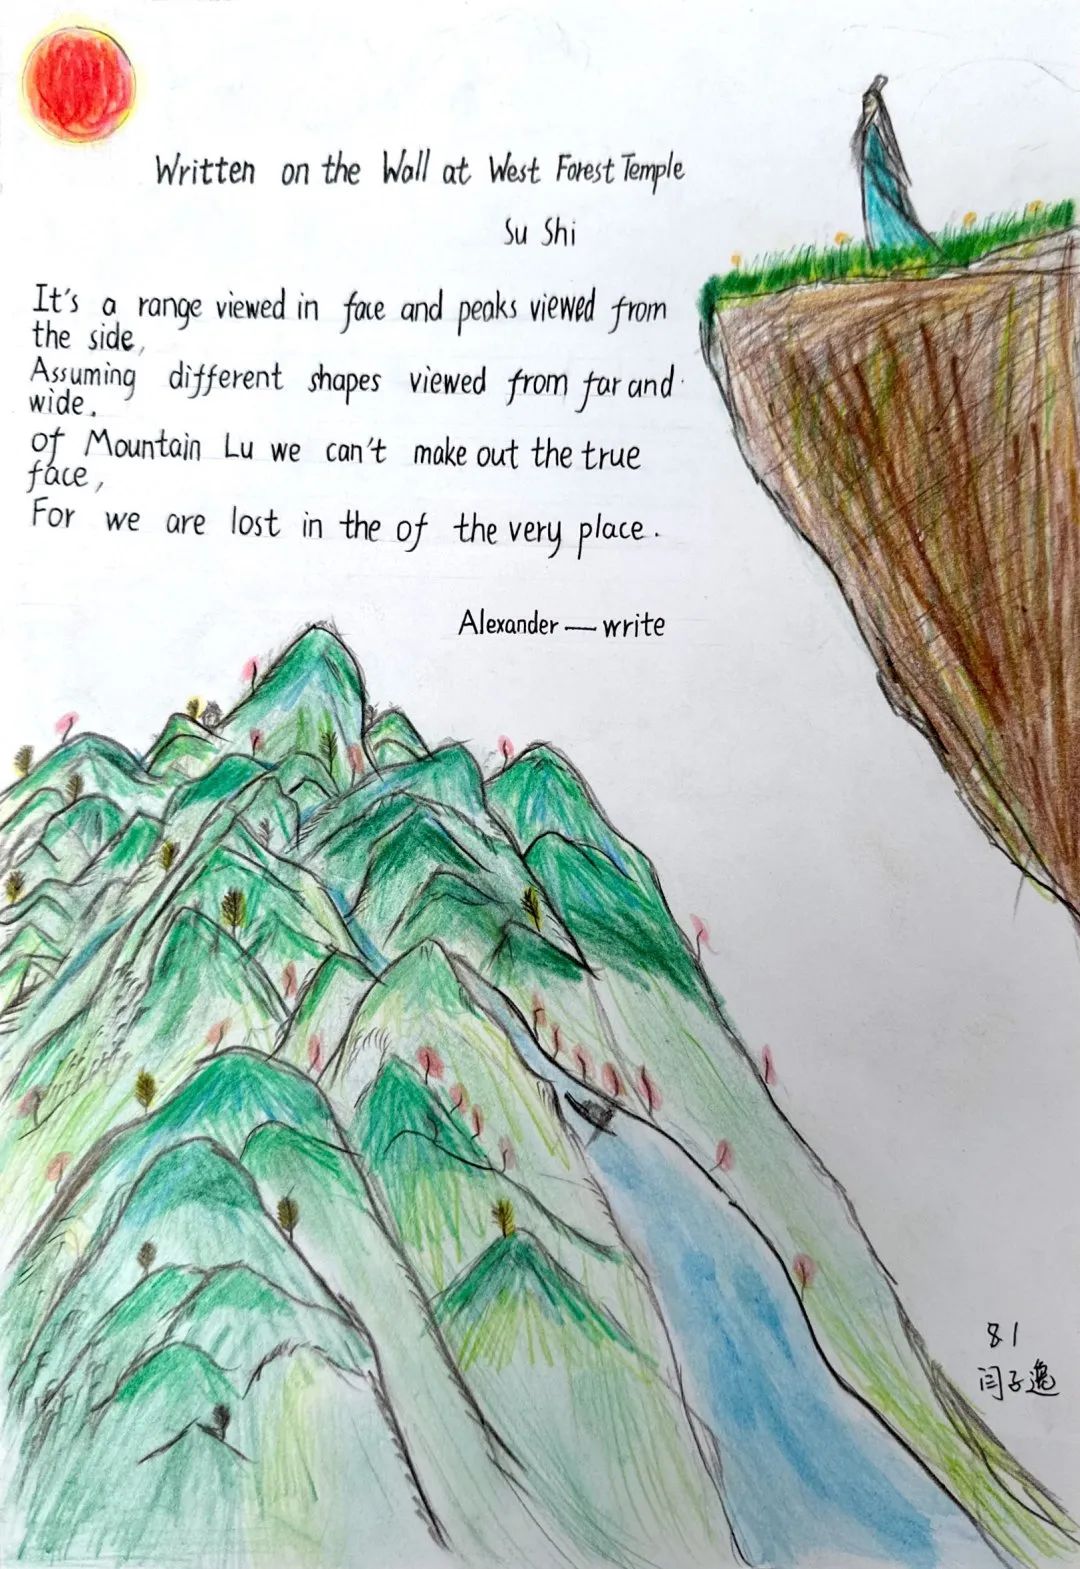 Written on the Wall at West Forest Temple
Su Shi
It's a range viewed in face and peaks viewed from
the side,
Assuming different shapes viewed from far and
wide.
of Mountain Lu we can't make out the true
face,
For we are lost in the of the very place.
Alexander — write
8.1
闫子逸